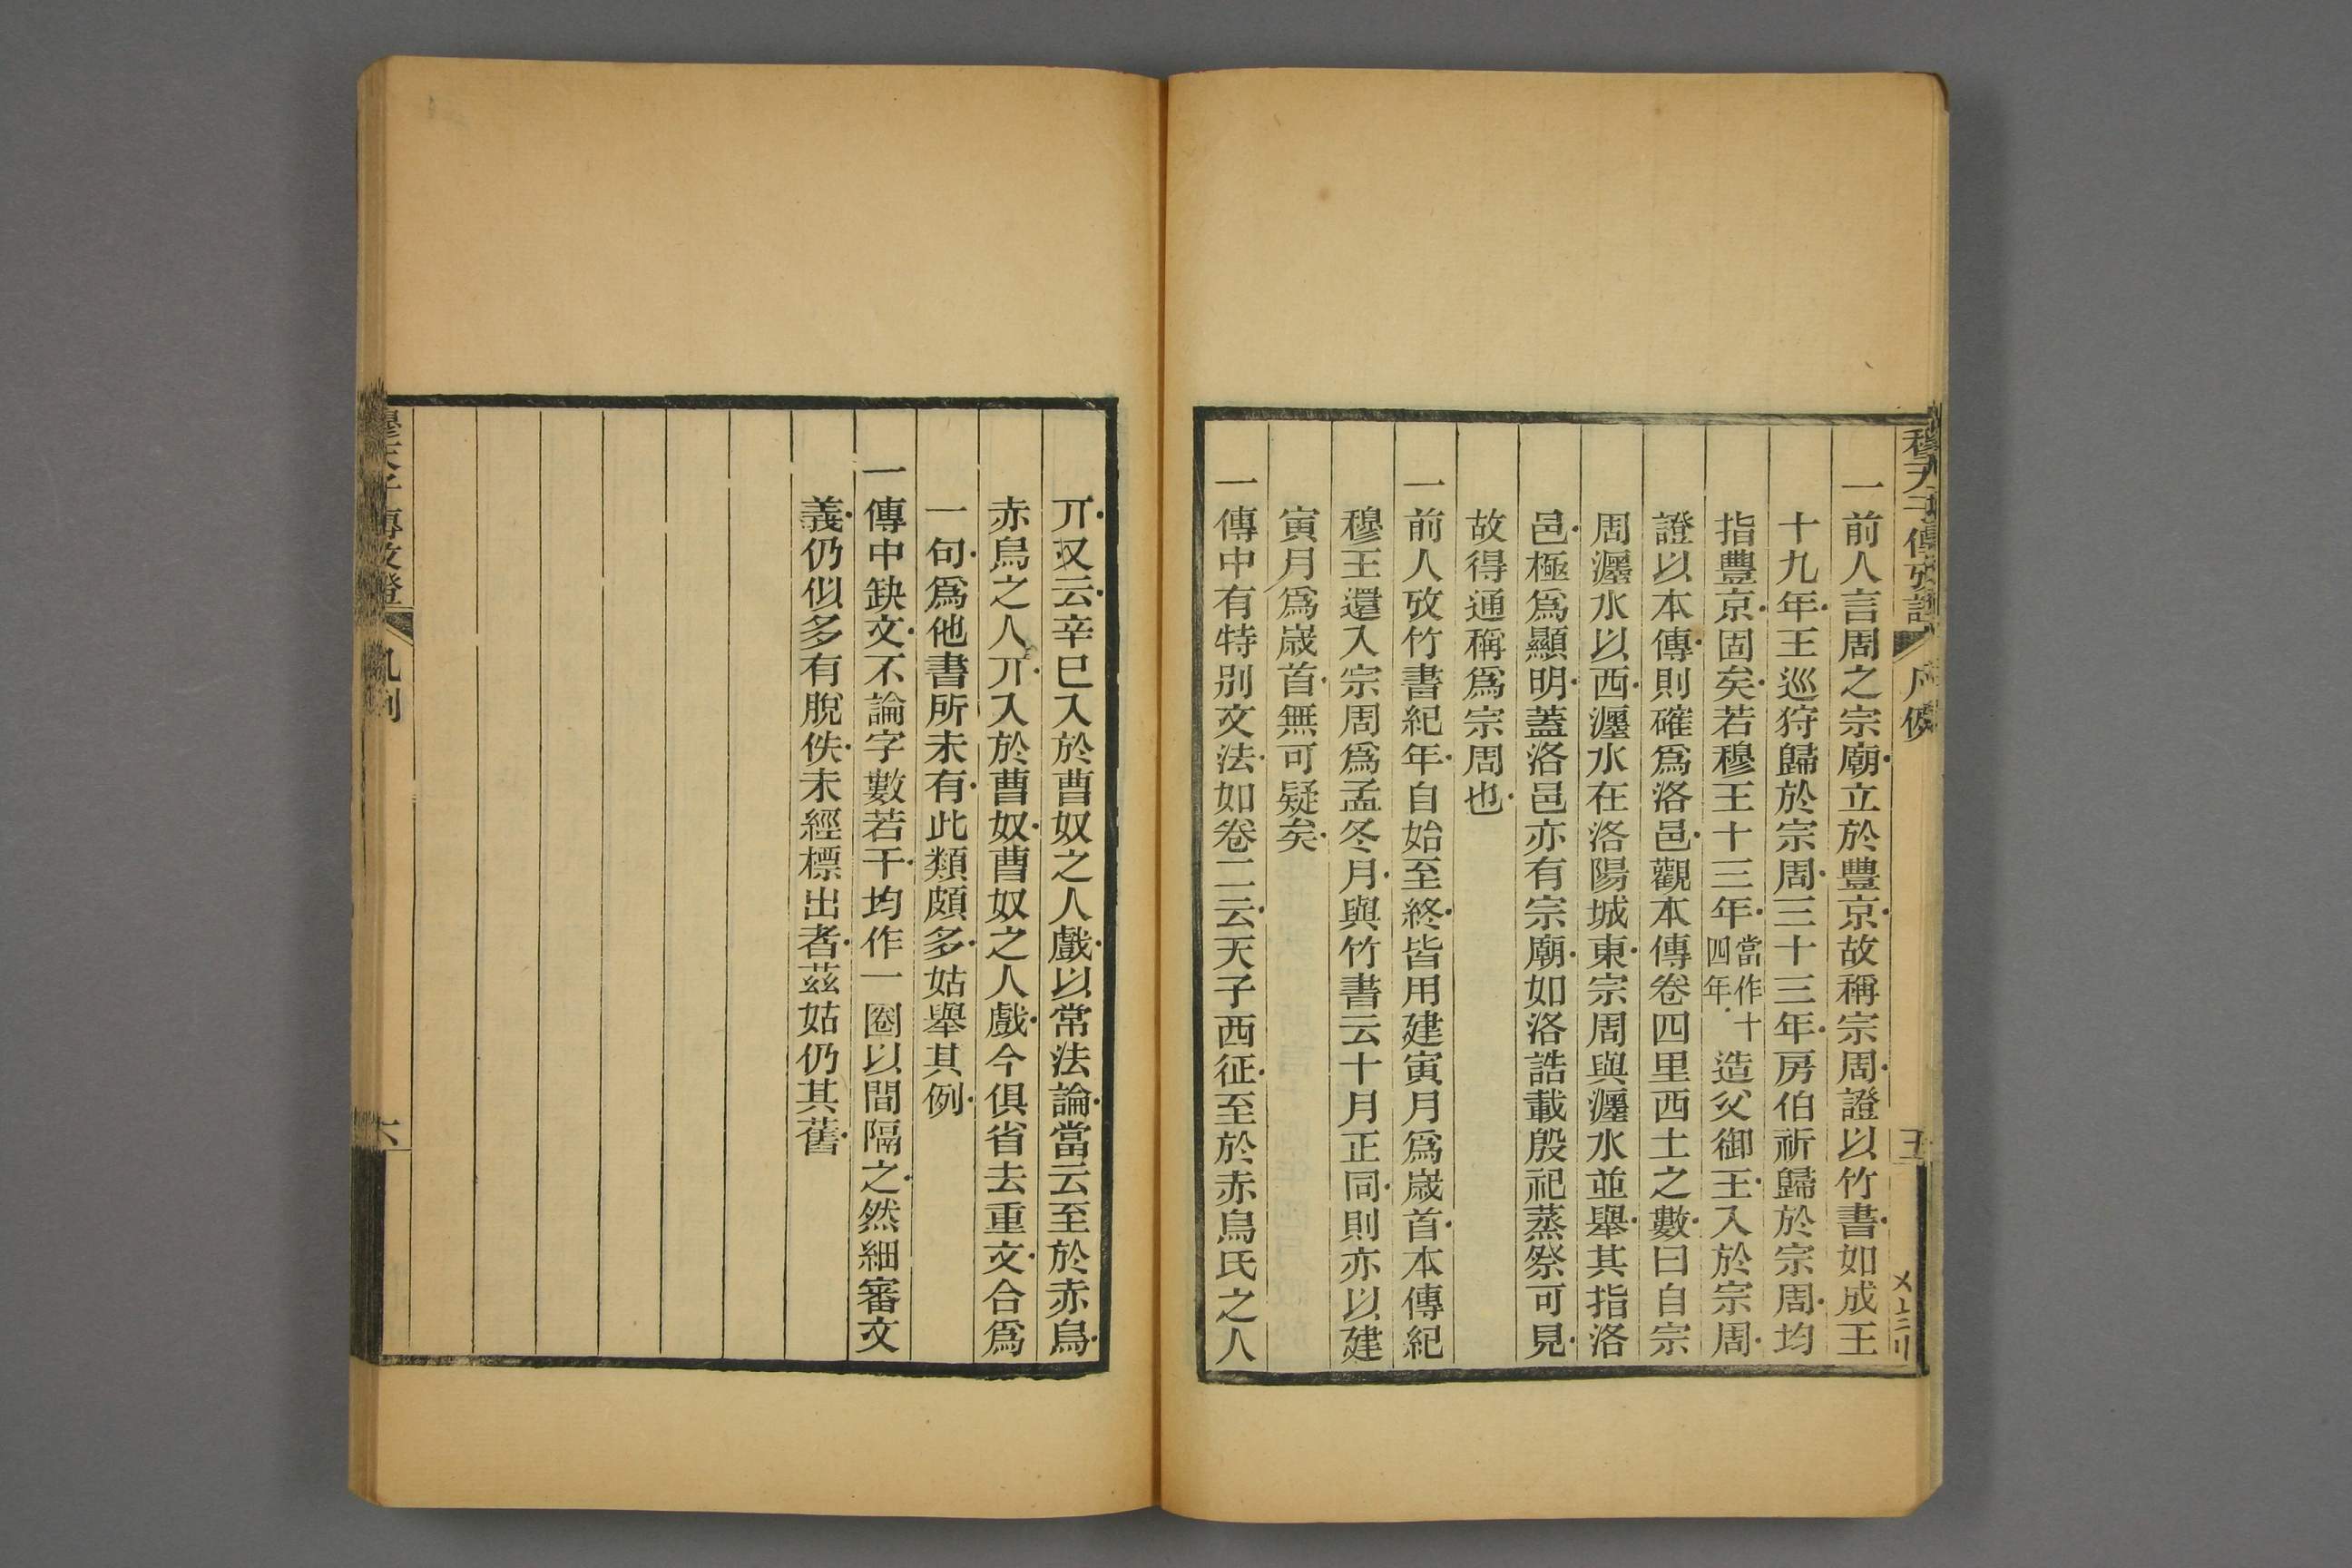 一前人言周之宗廟立於豐京故稱宗周證以竹書如成王
十九年王巡狩歸於宗周三十三年房伯祈歸於宗周均
指豐京固矣若穆王十三年當作十四年造父御王入於宗周
證以本傳則確爲洛邑觀本傳卷四里西土之數曰自宗
周瀍水以西瀍水在洛陽城東宗周與瀍水並舉其指洛
邑極爲顯明蓋洛邑亦有宗廟如洛誥載殷祀蒸祭可見
故得通稱爲宗周也
一前人攷竹書紀年自始至終皆用建寅月爲歲首本傳紀
穆王還入宗周爲孟冬月與竹書云十月正同則亦以建
寅月爲歲首無可疑矣
一傳中有特别文法如卷二云天子西征至於赤烏氏之人
丌又云辛巳入於曹奴之人戲以常法論當云至於赤烏
赤烏之人丌入於曹奴曹奴之人戲今俱省去重文合爲
一句爲他書所未有此類頗多姑舉其例
一傳中缺文不論字數若干均作一圈以間隔之然細審文
義仍似多有脫佚未經標出者茲姑仍其舊
穆天子傳攷證
凡例
六